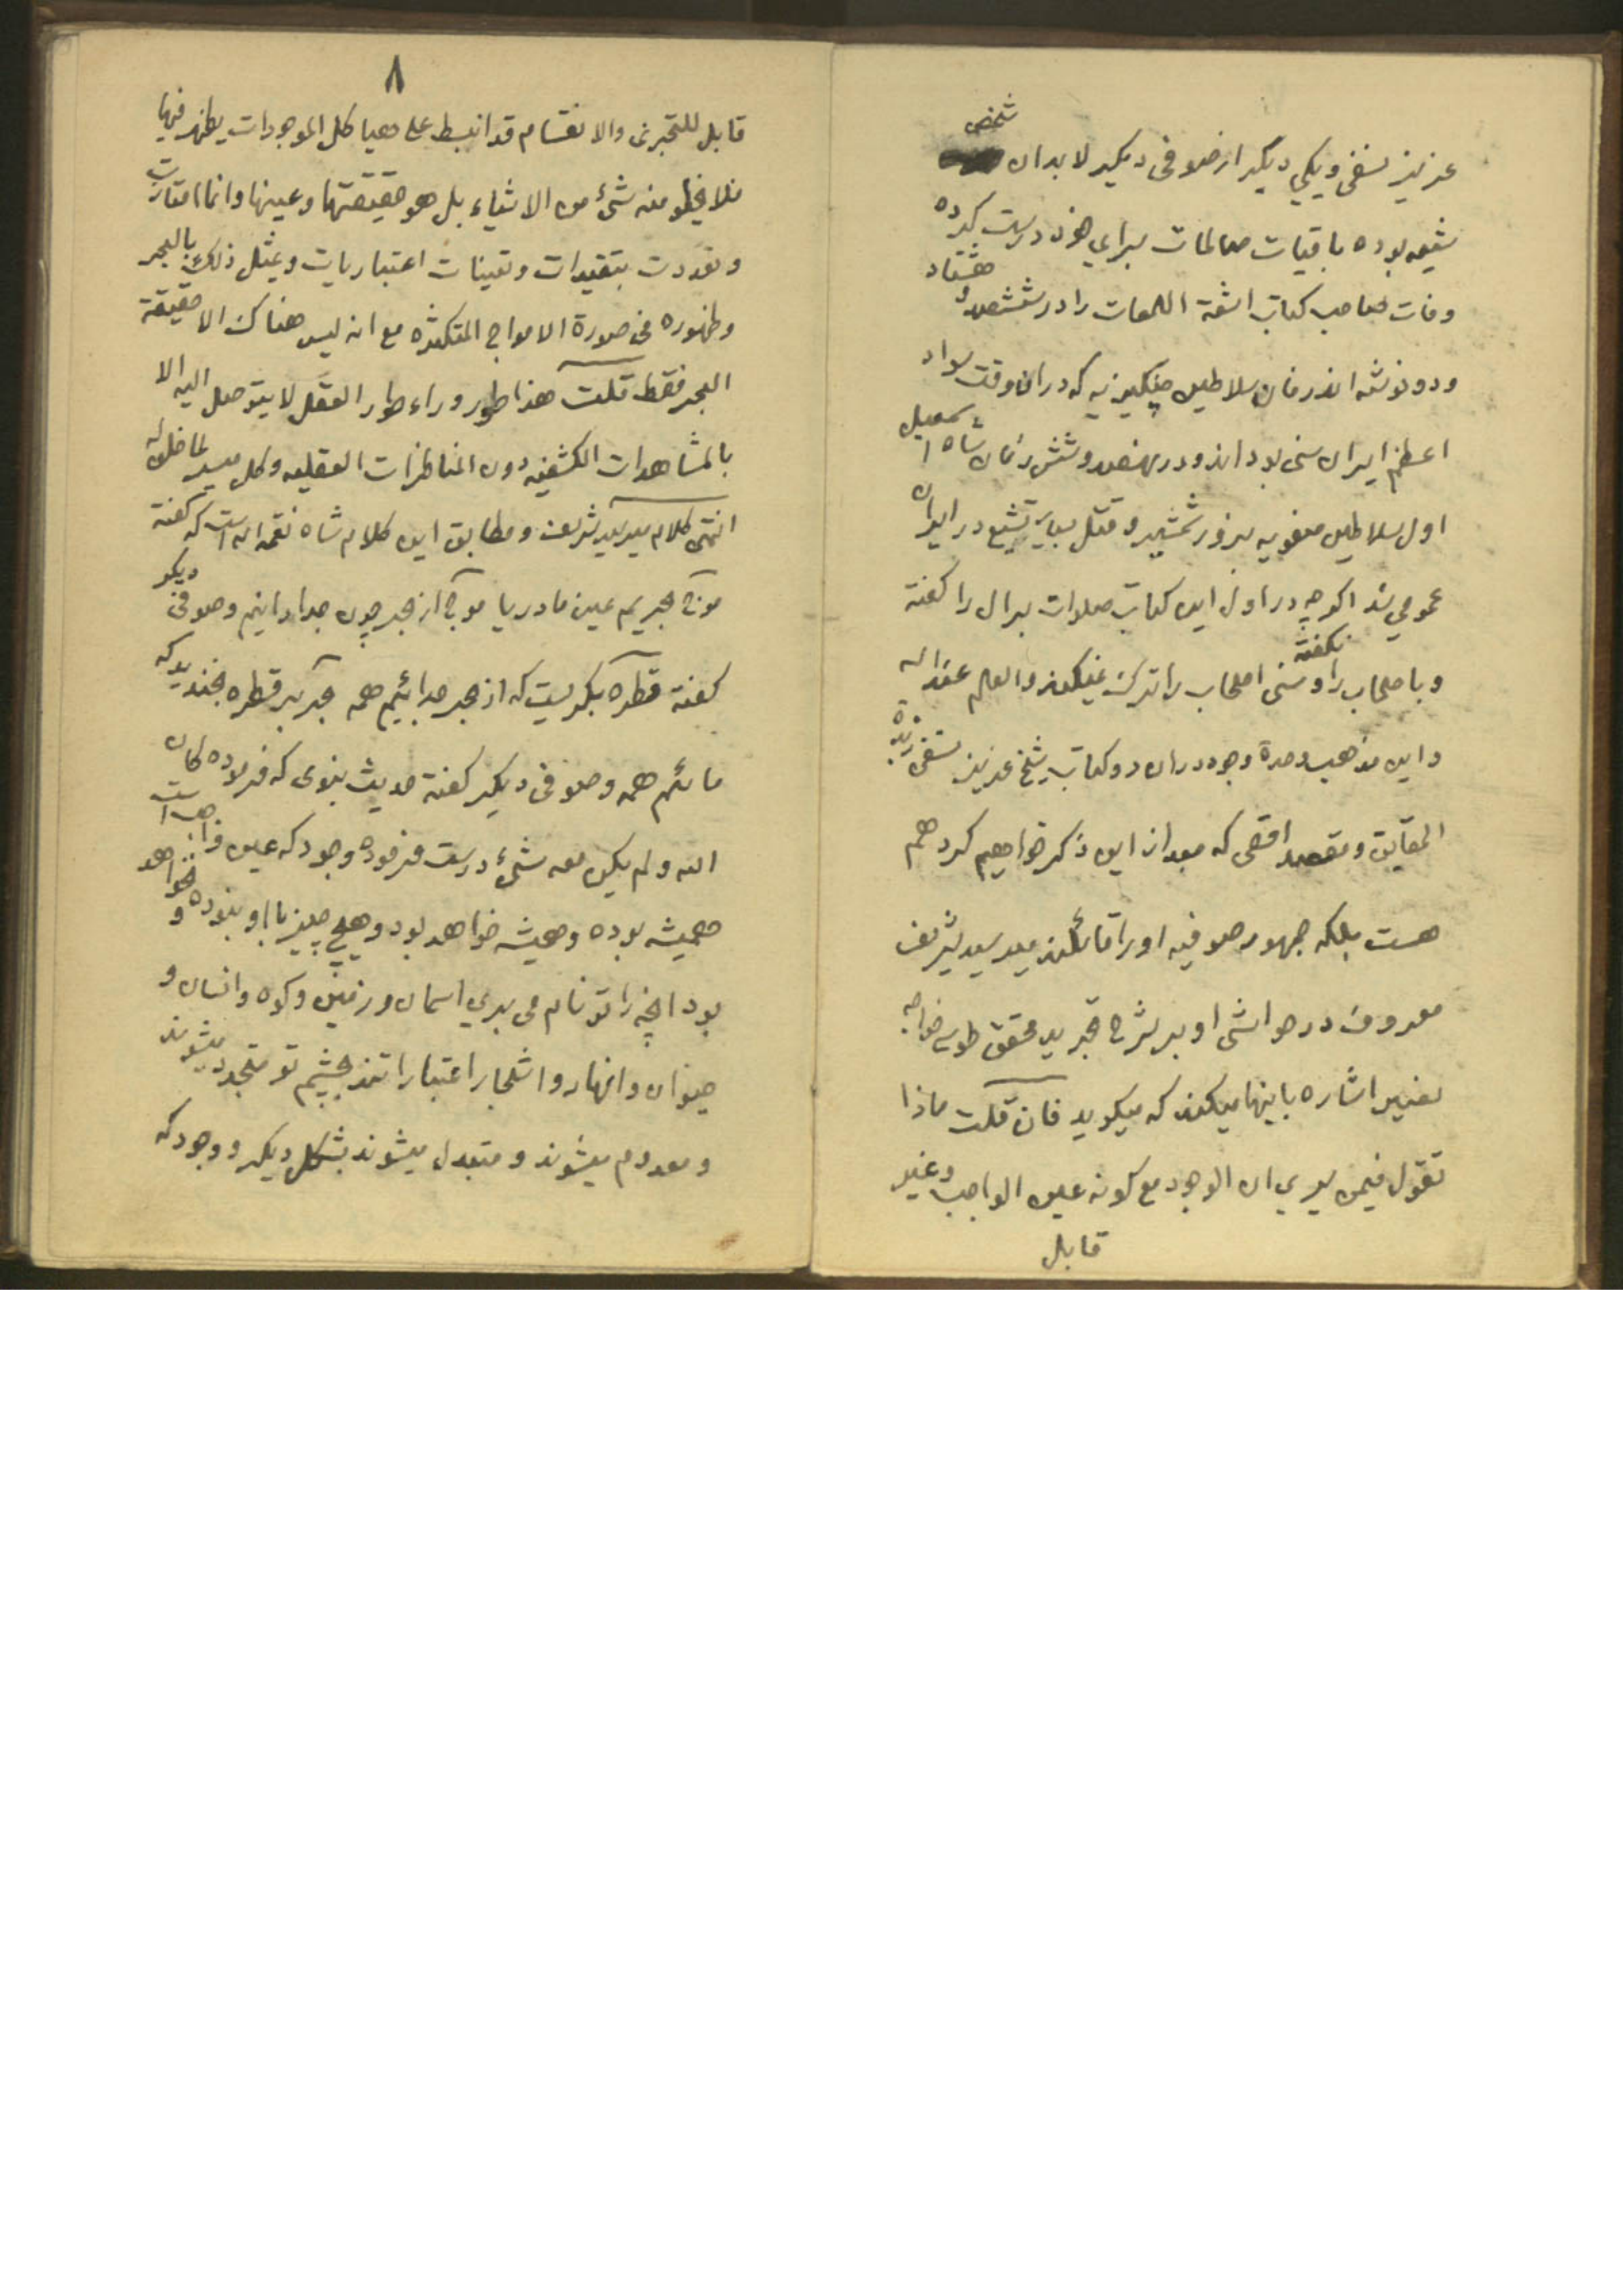 عزیز نسفی ویکی دیگر از صوفی دیگر لابدان شخص
شیعه بوده باقیات صالحات برای خود درست کرده
وفات صاحب کتاب اشعة اللمعات را در ششصد و هشتاد
ودو نوشته اند زمان سلاطین چنکیزیه که دران وقت سواد
اعظم ایران سنی بوداند و در نهصد وشش زمان شاه اسمعیل
اول سلاطین صفویه بزور شمشیر و قتل بسیار تشیع در ایران
عمومی شد اکرچه در اول این کتاب صلوات برال را کفته
وباصحاب را نکفته وسنی اصحاب را ترک نمیکند والعلم عند الله
واین مذهب وحدة وجود دران دو کتاب شیخ عزیز نسفی زبدة
الحقایق ومقصد اقصی که بعد از این ذکر خواهیم کرد هم
هست بلکه جمهور صوفیه اورا قائلند میر سید شریف
معروف در حواشی او بر شرح تجرید محقق طوسی خواجه
نصیر اشاره باینها میکند که میکوید فان قلت ماذا
تقول فیمن یری ان الوجود مع کونه عین الواجب وغیر
قابل
٨
قابل للتجزی والانقسام قد انبسط علی هیاکل الموجودات یظهر فیها
فلا یخلو منه شیٔ من الاشیاء بل هو حقیقتها وعینها وانما امتازت
وتعددت بتقیدات وتعینات اعتباریات ویمثل ذلک بالبحر
وظهوره فی صورة الامواج المتکثره مع انه لیس هناک الا حقیقة
البحر فقط قلت هذا طور وراء طور العقل لا یتوصل الیه الا
بالمشاهدات الکشفیه دون المناظرات العقلیه وکل میسر لما خلق له
انتهی کلام میر سید شریف ومطابق این کلام شاه نعمة الله است که کفته
موج بحریم عین ما دریا موج از بحر چون جدا دانیم وصوفی دیکر
کفته قطره بکریست که از بحر جدائیم همه بحر بر قطره بخندید که
مائیم همه وصوفی دیکر کفته حدیث نبوی که فرموده کان
الله ولم یکن معه شیٔ درست فرموده وجود که عین واجب است
همیشه بوده وهمیشه خواهد بود وهیچ چیز با او نبوده و نخواهد
بود انچه را تو نام می بری اسمان وزمین وکوه وانسان و
حیوان وانهار واشجار اعتبارا تند بچشم تو متجدد میشوند
ومعدوم میشوند و متبدل میشوند بشکل دیکر ووجود که